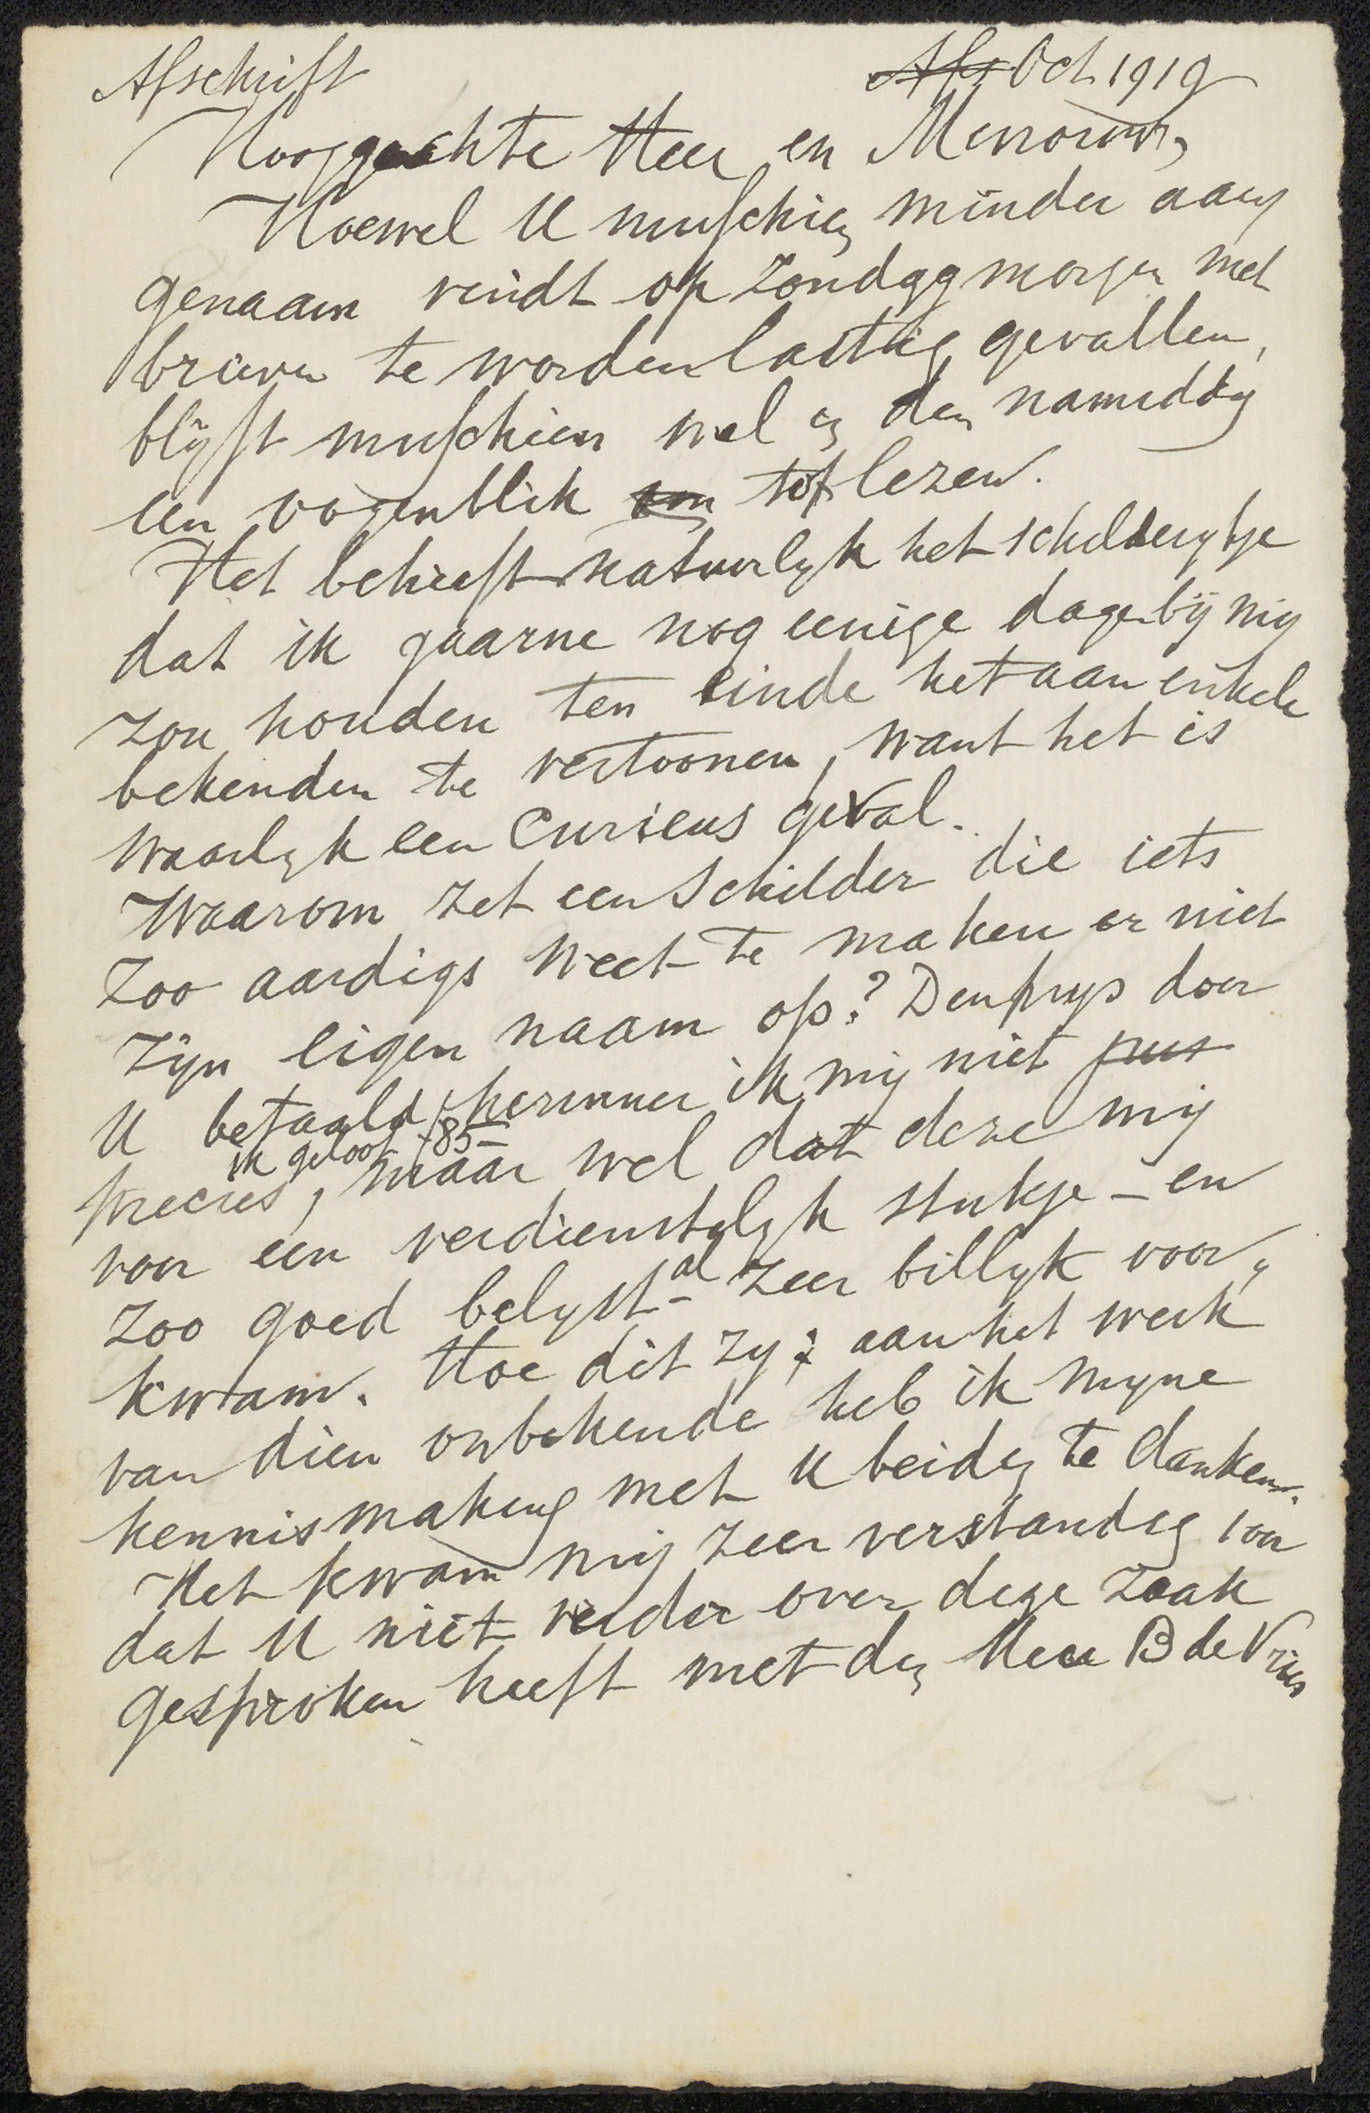 Afschrift Afs Oct 1919
Hooggeachte Heer en Mevrouw,
Hoewel U misschien minder aan
genaam vindt op Zondagmorgen met
brieven te worden lastig gevallen,
blijft misschien wel in den namiddag
een oogenblik om tot lezen.
Het betreft natuurlyk het schilderytje
dat ik gaarne nog eenige dagen bij mij
zou houden ten einde het aan enkele
bekenden te vertoonen, want het is
waarlyk een curieus geval.
Waarom zet een schilder die iets
zoo aardigs weet te maken er niet
zijn eigen naam op? Den prys door
U betaald, herinner ik mij niet pres
precies, ik geloof f 85- maar wel dat deze mij
voor een verdienstelyk stukje – en
zoo goed belyst – al zeer billyk voor,
kwam. Hoe dit zy; aan het werk
van dien onbekende heb ik myne
kennismaking met U beiden te danken.
Het kwam mij zeer verstandig voor
dat U niet verder over deze zaak
gesproken heeft met den Heer B de Vries